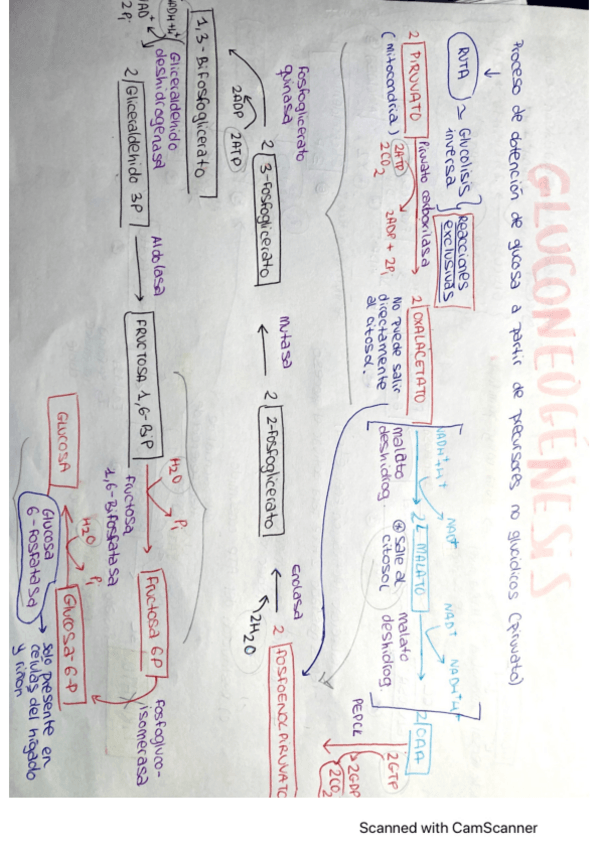 GLUCONEOGÉNESIS
Proceso de obtención de glucosa a partir de precursores no glucídicos (piruvato)
RUTA
Glucolisis
inversa
Reacciones
exclusivas
2 PIRUVATO
(mitocondria)
Piruvato carboxilasa
2ATP
2CO2
2ADP + 2Pi
2 OXALACETATO
No puede salir
directamente
al citosol.
NADH+H+
NAD+
malato
deshidrog.
2 L MALATO
sale al
citosol
NAD+
NADH+H+
malato
deshidrog.
2 OAA
PEPCK
2GTP
2GDP
2CO2
2 FOSFOENOLPIRUVATO
Enolasa
2H2O
2 2-Fosfoglicerato
mutasa
2 3-Fosfoglicerato
Fosfoglicerato
quinasa
2ATP
2ADP
1,3-Bifosfoglicerato
NADH+H+
NAD+
2Pi
Gliceraldehido
deshidrogenasa
2 Gliceraldehido 3P
Aldolasa
FRUCTOSA 1,6-BiP
H2O
Pi
fructosa
1,6-Bifosfatasa
Fructosa 6P
Fosfogluco-
isomerasa
Glucosa-6-P
H2O
Pi
Glucosa
6-Fosfatasa
solo presente en
células del hígado
y riñón
GLUCOSA
Scanned with CamScanner